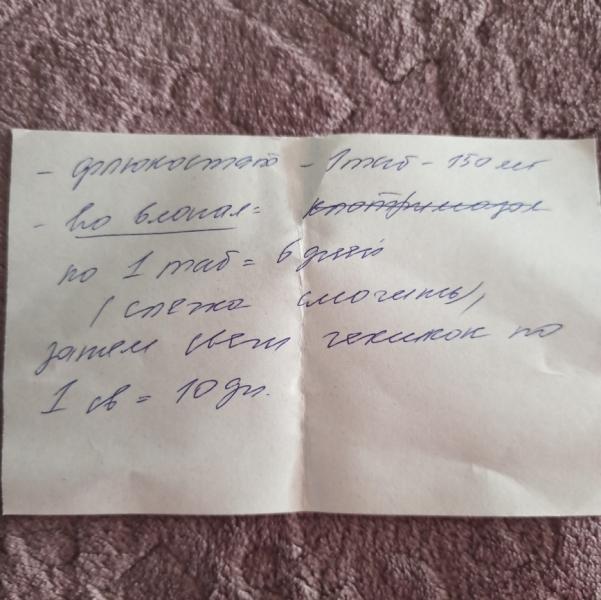 - флюкостат - 1 таб - 150 мг
- Во влагал = клотримазол
по 1 таб = 6 дней
(слегка смочить),
затем свечи гексикон по
1 св = 10 дн.